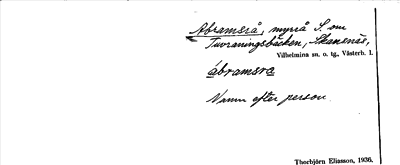 Abramsrå, myrrå S. om
Tuvraningsbäcken, Skansnäs,
Vilhelmina sn. o. tg., Västerb. l.
ábramsrα
Namn efter person.
Thorbjörn Eliasson, 1936.